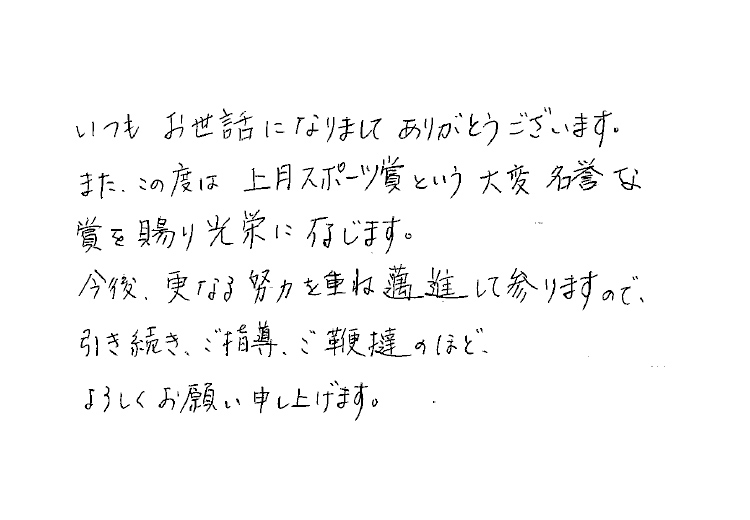 いつも お世話になりまして ありがとうございます。
また、この度は 上月スポーツ賞という 大変 名誉な
賞を賜り光栄に存じます。
今後、更なる努力を重ね邁進して参りますので、
引き続き、ご指導、ご鞭撻のほど、
よろしくお願い申し上げます。